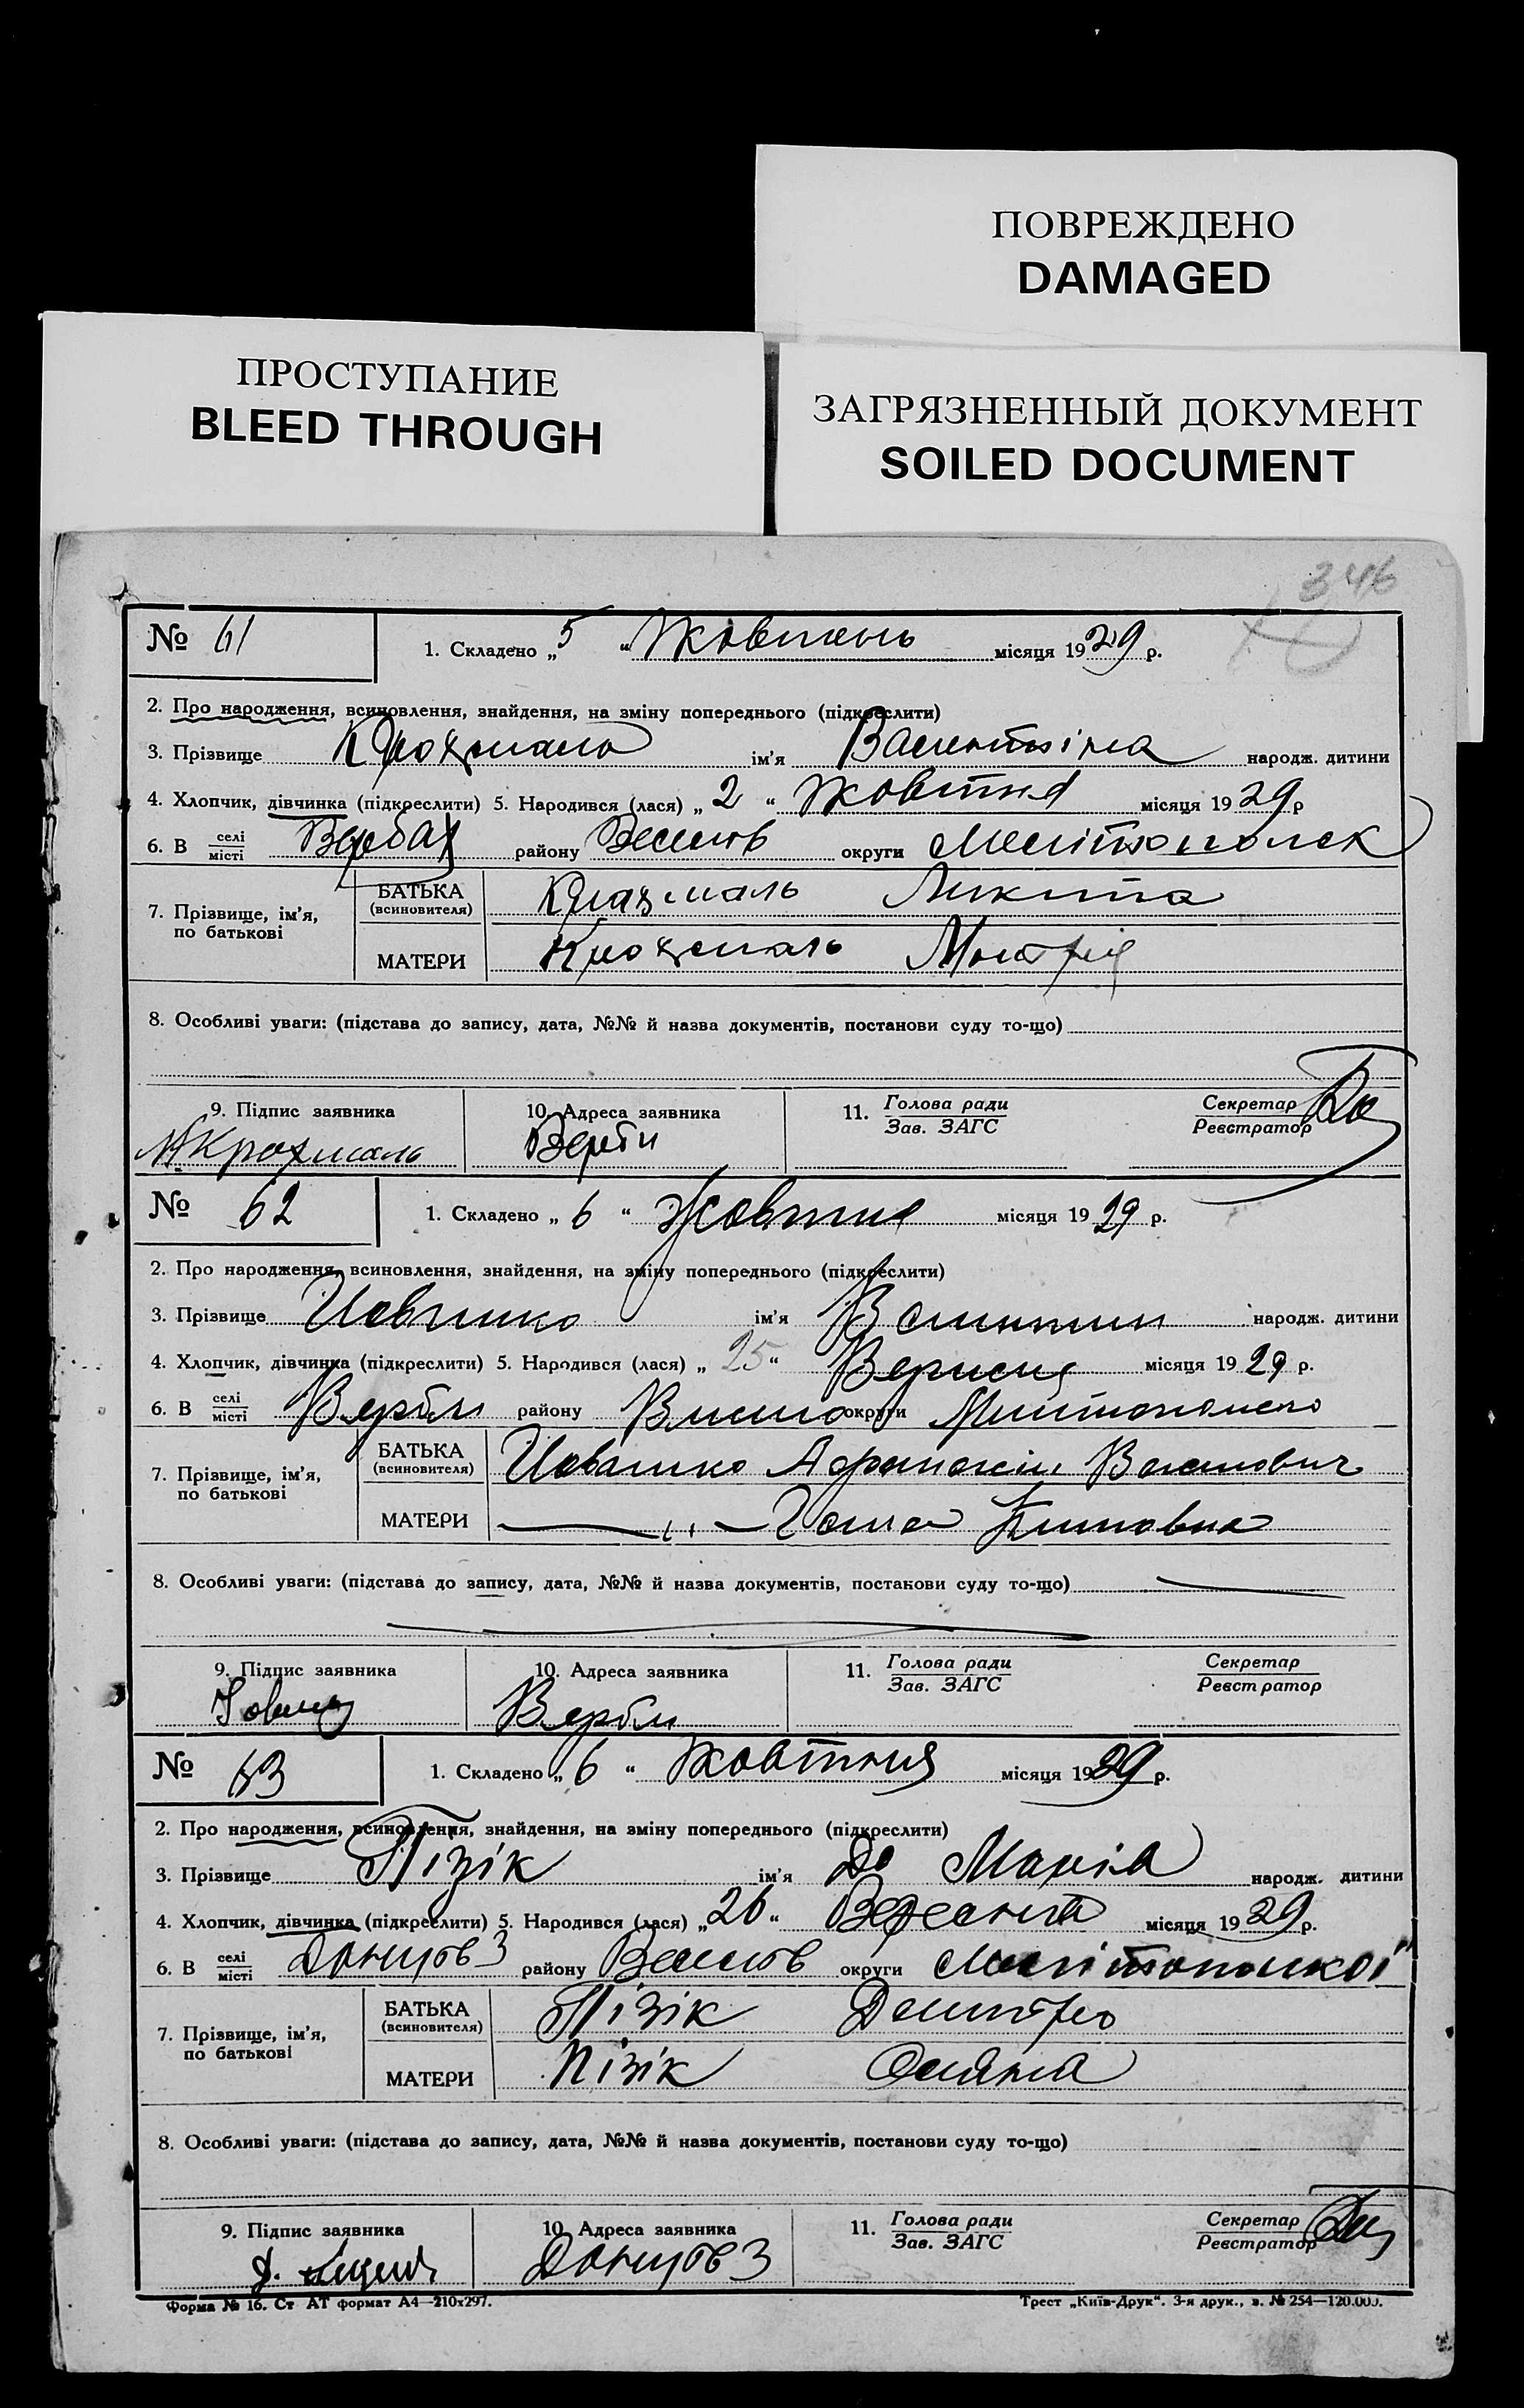 ПОВРЕЖДЕНО
DAMAGED
ПРОСТУПАНИЕ
BLEED THROUGH
ЗАГРЯЗНЕННЫЙ ДОКУМЕНТ
SOILED DOCUMENT
346
№ 61 1. Складено „5“ Жовтень місяця 1929 р.
2. Про народження, всиновлення, знайдення, на зміну попереднього (підкреслити)
3. Прізвище Крохмаль ім'я Валентіна народж. дитини
4. Хлопчик, дівчинка (підкреслити) 5. Народився (лася) „2“ Жовтня місяця 1929 р
6. В селі/місті Вербах району Веселів округи Мелітопольск
7. Прізвище, ім'я, по батькові
БАТЬКА (всиновителя) Крохмаль Микита
МАТЕРИ Крохмаль
8. Особливі уваги: (підстава до запису, дата, №№ й назва документів, постанови суду то-що)
9. Підпис заявника 10. Адреса заявника 11. Голова ради/Зав. ЗАГС Секретар/Реєстратор
Крохмаль Верби
№ 62 1. Складено „6“ Жовтня місяця 1929 р.
2. Про народження, всиновлення, знайдення, на зміну попереднього (підкреслити)
3. Прізвище ім'я народж. дитини
4. Хлопчик, дівчинка (підкреслити) 5. Народився (лася) „25“ Вересня місяця 1929 р.
6. В селі/місті Верби району округи
7. Прізвище, ім'я, по батькові
БАТЬКА (всиновителя)
МАТЕРИ — „ —
8. Особливі уваги: (підстава до запису, дата, №№ й назва документів, постанови суду то-що)
9. Підпис заявника 10. Адреса заявника 11. Голова ради/Зав. ЗАГС Секретар/Реєстратор
Верби
№ 63 1. Складено „6“ Жовтня місяця 1929 р.
2. Про народження, всиновлення, знайдення, на зміну попереднього (підкреслити)
3. Прізвище Пізік ім'я Марія народж. дитини
4. Хлопчик, дівчинка (підкреслити) 5. Народився (лася) „26“ Вересня місяця 1929 р.
6. В селі/місті району Веселів округи Мелітопольскої
7. Прізвище, ім'я, по батькові
БАТЬКА (всиновителя) Пізік Демитро
МАТЕРИ Пізік Оляна
8. Особливі уваги: (підстава до запису, дата, №№ й назва документів, постанови суду то-що)
9. Підпис заявника 10. Адреса заявника 11. Голова ради/Зав. ЗАГС Секретар/Реєстратор
Форма № 16. Ст АТ формат А4—210х297. Трест „Київ-Друк“. 3-я друк., з. № 254—120.000.